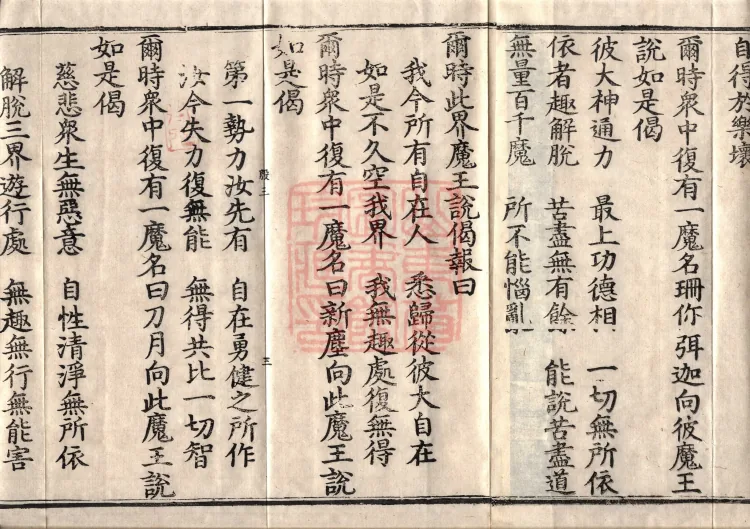 自得放樂壞
爾時衆中復有一魔名珊你弭迦向彼魔王
說如是偈
彼大神通力 最上功德相 一切無所依
依者趣解脫 苦盡無有餘 能說苦盡道
無量百千魔 所不能惱亂
爾時此界魔王說偈報曰
我今所有自在人 悉歸從彼大自在
如是不久空我界 我無趣處復無得
爾時衆中復有一魔名曰新塵向此魔王說
如是偈
第一勢力汝先有 自在勇健之所作
汝今失力復無能 無得共比一切智
殷三
三
爾時衆中復有一魔名曰刀月向此魔王說
如是偈
慈悲衆生無惡意 自性清淨無所依
解脫三界遊行處 無趣無行無能害